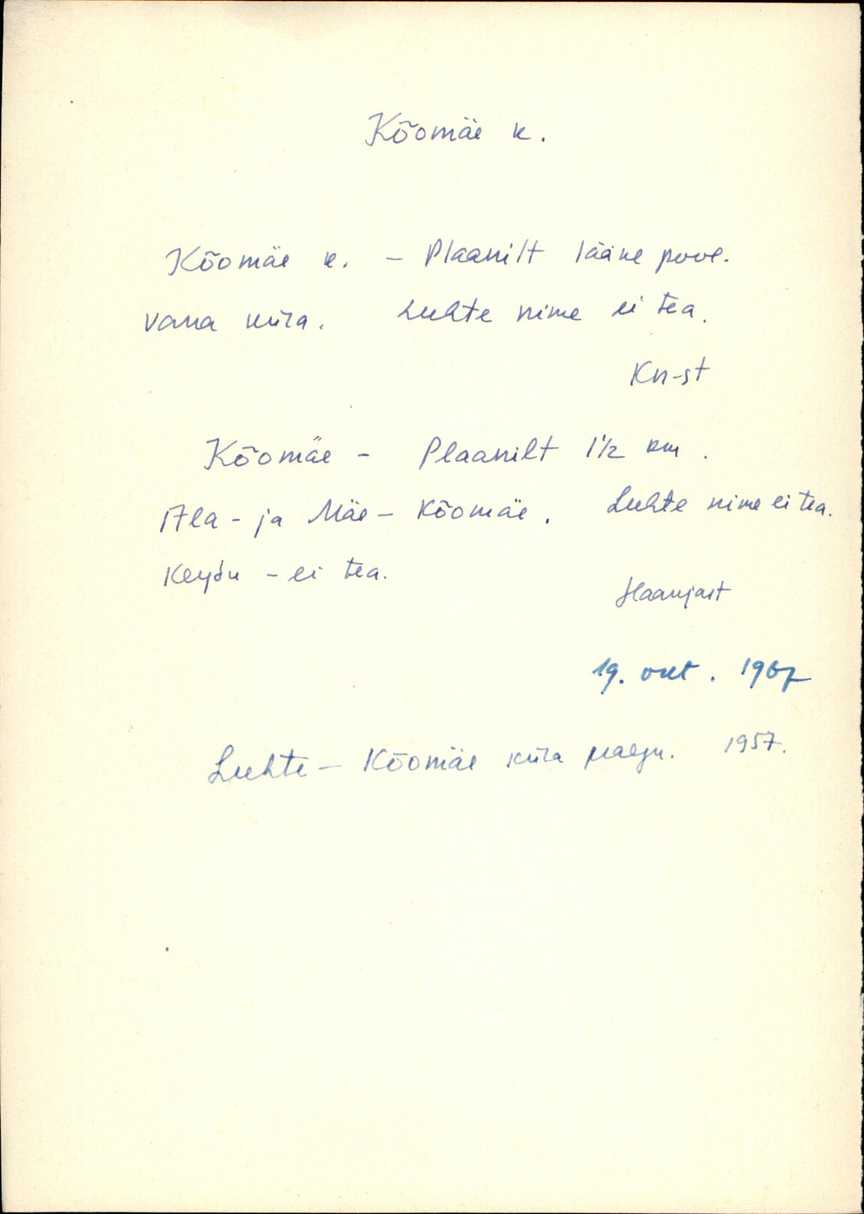 Kõomäe k.
Kõomäe k. - Plaanilt lääne pool.
vana küla. Luhte nime ei tea.
Kn-st
Kõomäe - Plaanilt 1½ km.
Ala- ja Mäe- Kõomäe. Luhte nime ei tea.
- ei tea.
Haanjast
19. okt. 1967
Luhte - Kõomäe küla praegu. 1957.